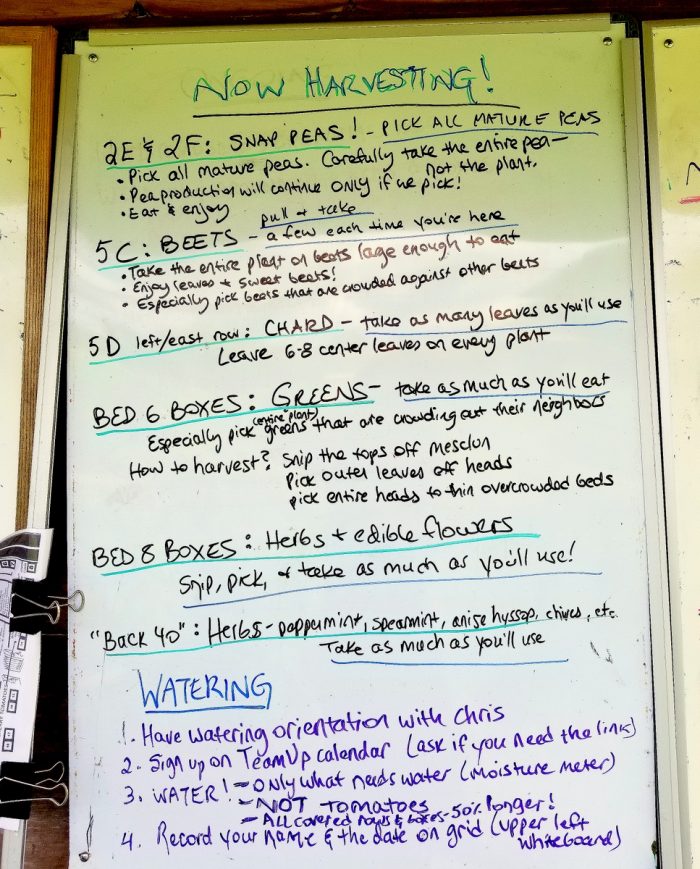 NOW HARVESTING!
2E & 2F: SNAP PEAS! - PICK ALL MATURE PEAS
• Pick all mature peas. Carefully take the entire pea— not the plant.
• Pea production will continue ONLY if we pick!
• Eat & enjoy
pull & take
5C: BEETS - a few each time you're here
• Take the entire plant on beets large enough to eat
• Enjoy leaves & sweet beets!
• Especially pick beets that are crowded against other beets
5D left/east row: CHARD - take as many leaves as you'll use
Leave 6-8 center leaves on every plant
BED 6 BOXES: GREENS - take as much as you'll eat
(entire plant)
Especially pick greens that are crowding out their neighbors
How to harvest? Snip the tops off mesclun
Pick outer leaves off heads
pick entire heads to thin overcrowded beds
BED 8 BOXES: Herbs + edible flowers
Snip, pick, & take as much as you'll use!
"Back 40": Herbs - peppermint, spearmint, anise hyssop, chives, etc.
Take as much as you'll use
WATERING
1. Have watering orientation with Chris
2. Sign up on TeamUp calendar (ask if you need the link)
3. WATER! - Only what needs water (moisture meter)
- NOT tomatoes
- All covered rows & boxes - 50% longer!
4. Record your name & the date on grid (upper left whiteboard)